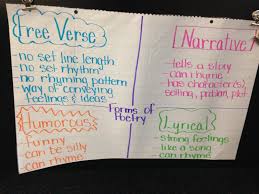 Free Verse
no set line length
no set rhythm
no rhyming pattern
way of conveying
feelings & ideas
Narrative
tells a story
can rhyme
has character(s),
setting, problem, plot
Forms of
Poetry
Humorous
funny
can be silly
can rhyme
Lyrical
strong feelings
like a song
can rhyme